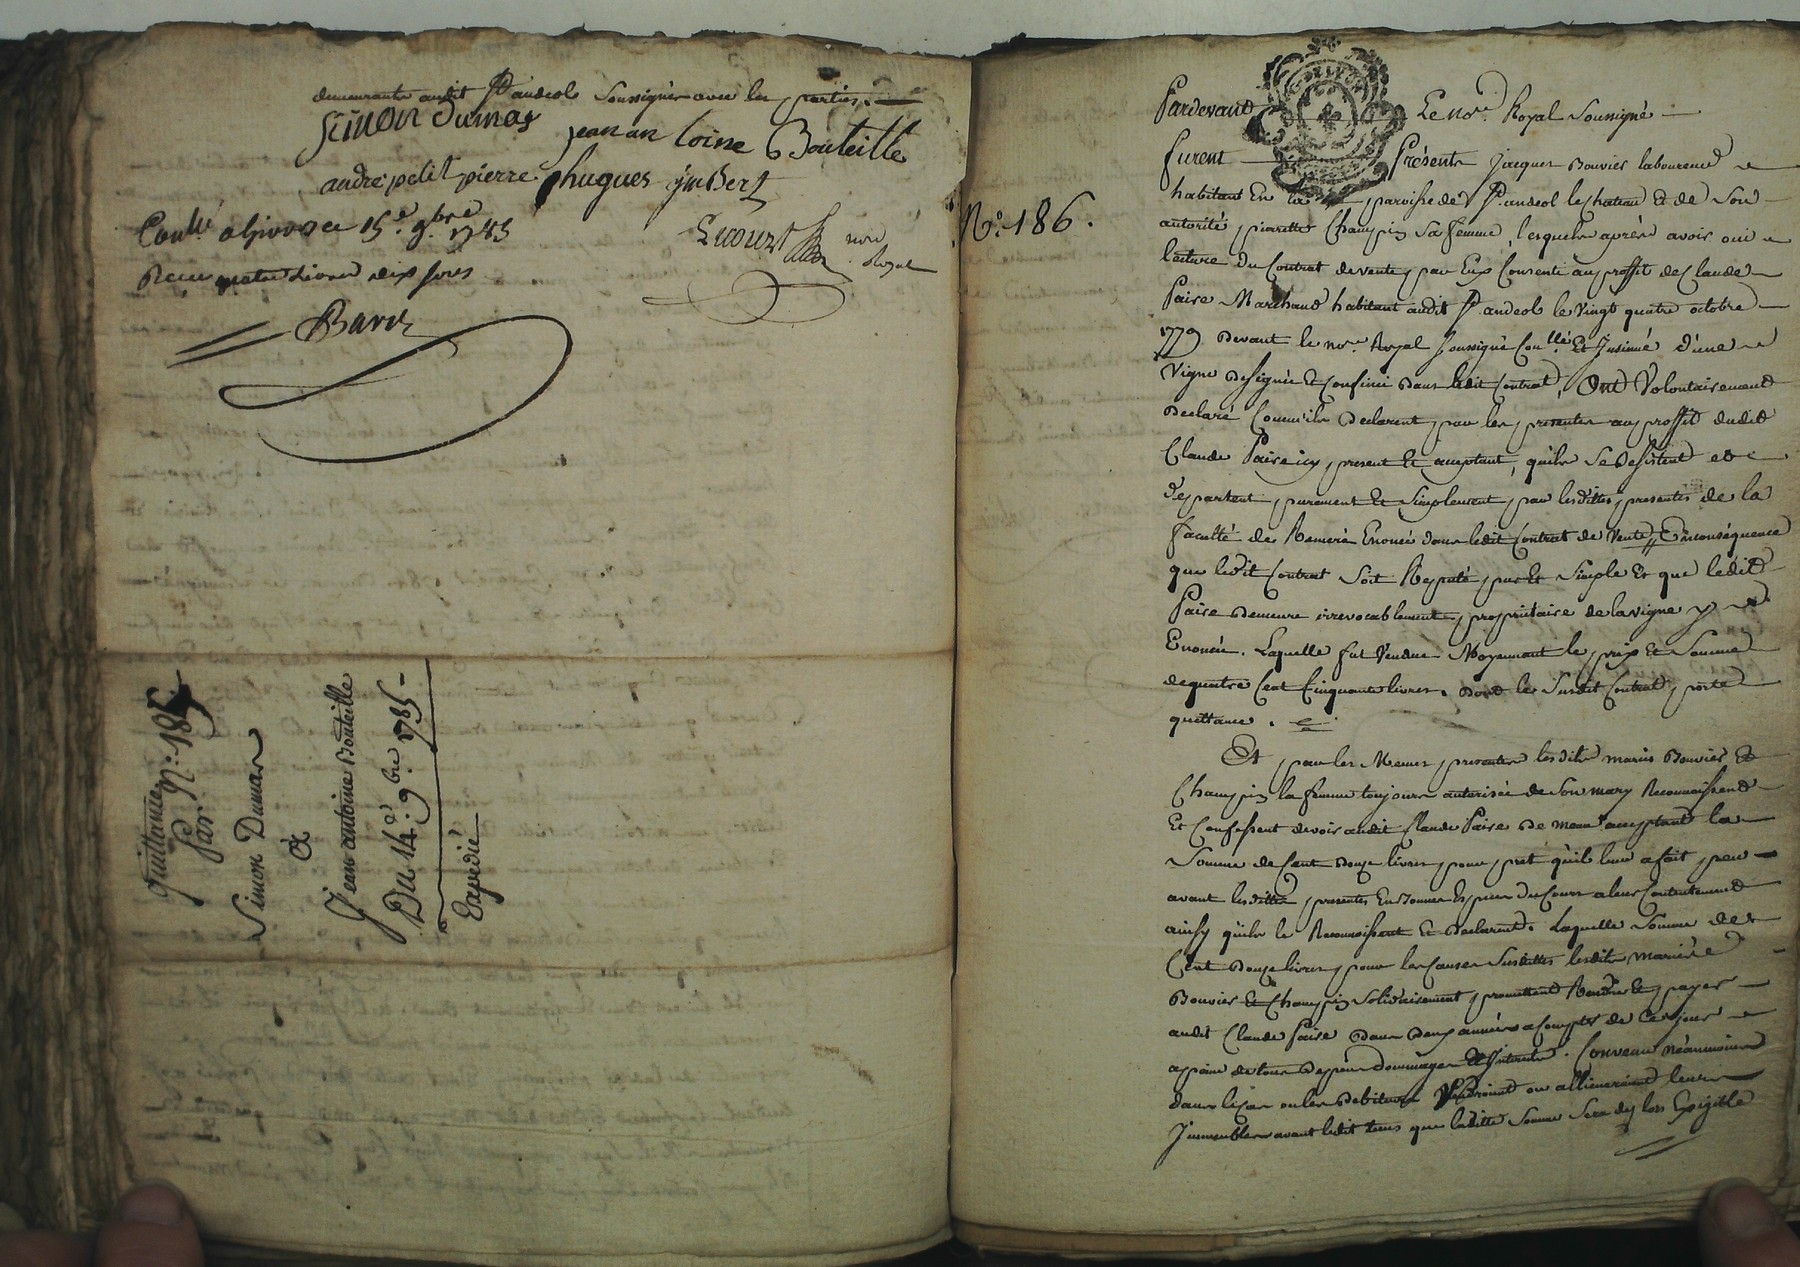 demeurants audit St andeol Soussignés avec les parties. —
Simon dumas
jean antoine Bouteille
andré petit pierre hugues imbert
Conllé a le 15e. 9bre 1785
Recu quatre livres dix sous
Barre
nore
Royal
quittance n°. 185.
Par
Simon Dumas
à
Jean antoine Bouteille
Du 14e. 9bre 1785 —
Expédié
N°. 186.
Pardevant Le nore. Royal Soussigné —
furent Présents jacques Bouvier laboureur
habitant En la paroisse de St. andeol le chateau Et de Son
autorité, pierrette Champin Sa femme, lesquels après avoir oui
lecture du Contrat de vente par Eux Consenti au proffit de Claude
Paire Marchand habitant audit St andeol le vingt quatre octobre
1779 devant le nore. Royal soussigné Conllé Et Insinué d'une
vigne désignée Et Confinée dans ledit Contrat, Ont volontairement
Declaré Comm'ils Declarent, par les presentes au proffit dudit
Claude Paire icy present Et acceptant, qu'ils Se desistent et
departent, purement Et Simplement, par lesdittes presentes de la
faculté de Remeré Enoncée dans ledit Contrat de vente, En conséquence
que ledit Contrat Soit Reputé pur Et Simple Et que ledit
Paire demeure irrevocablement, proprietaire de la vigne y
Enoncée. Laquelle fut vendue Moyennant le prix Et Somme
de quatre Cent Cinquante livres. dont le Susdit Contrat, porte
quittance.
Et par les Memes presentes lesdits mariés Bouvier Et
Champin la femme toujours autorisée de Son mary Reconnaissent
Et Confessent devoir audit Claude Paire de meme acceptant la
Somme de Cent douze livres, pour pret qu'il leur a fait, peu
avant lesdittes presentes En bonnes Especes du Cours a leur Contentement
ainsy qu'ils le Reconnoissent Et declarent. Laquelle Somme de
Cent douze livres, pour les Causes Susdittes lesdits mariés
Bouvier Et Champin Solidairement, promettent Rendre Et payer
audit Claude Paire dans deux années a Compter de Ce jour
a peine de tous depens dommages Et Interets. Convenu néanmoins
dans le Cas ou les debiteurs vendroient ou allieneroient leurs
Immeubles avant ledit tems que laditte Somme Sera dez lors Exigible